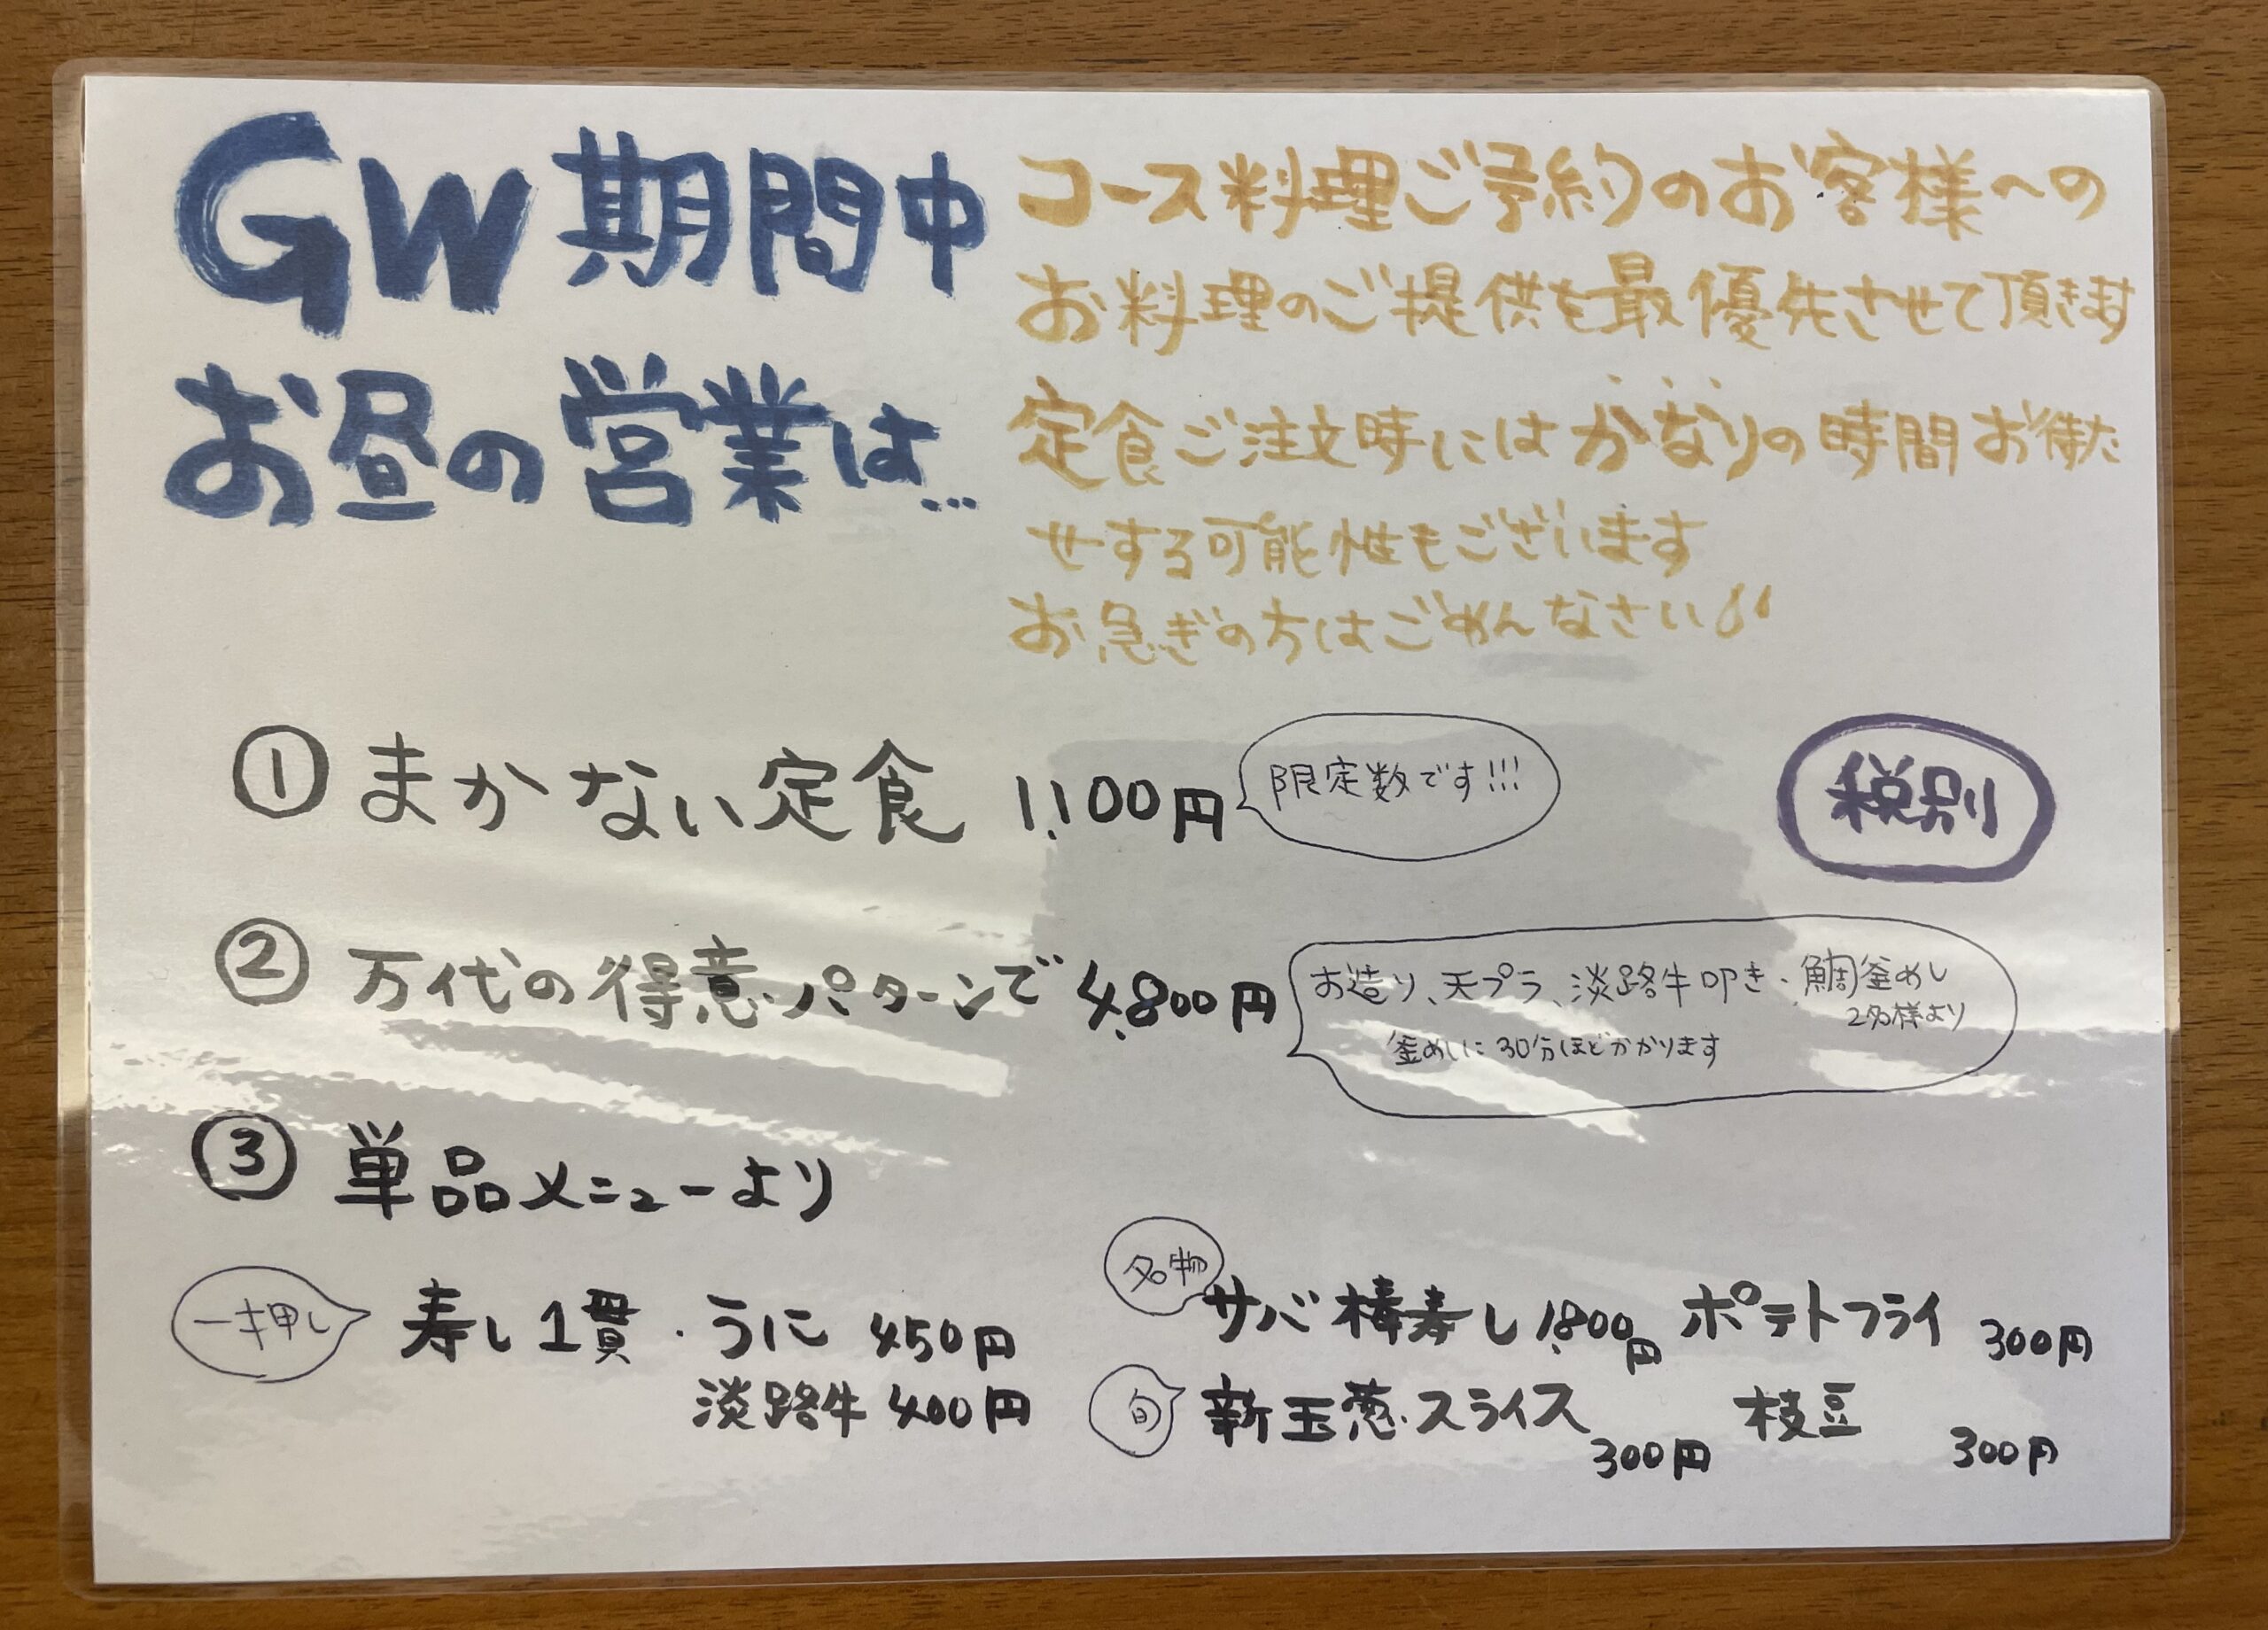 GW期間中
お昼の営業は...
コース料理ご予約のお客様への
お料理のご提供を最優先させて頂きます
定食ご注文時にはかなりの時間お待た
せする可能性もございます
お急ぎの方はごめんなさい
① まかない定食 1,100円
限定数です!!!
税別
② 万代の得意パターンで 4,800円
お造り、天プラ、淡路牛叩き・鯛釜めし
2名様より
釜めしに30分ほどかかります
③ 単品メニューより
一押し
寿し1貫・うに 450円
淡路牛 400円
名物
サバ棒寿し 1,800円
ポテトフライ 300円
旬
新玉葱スライス 300円
枝豆 300円